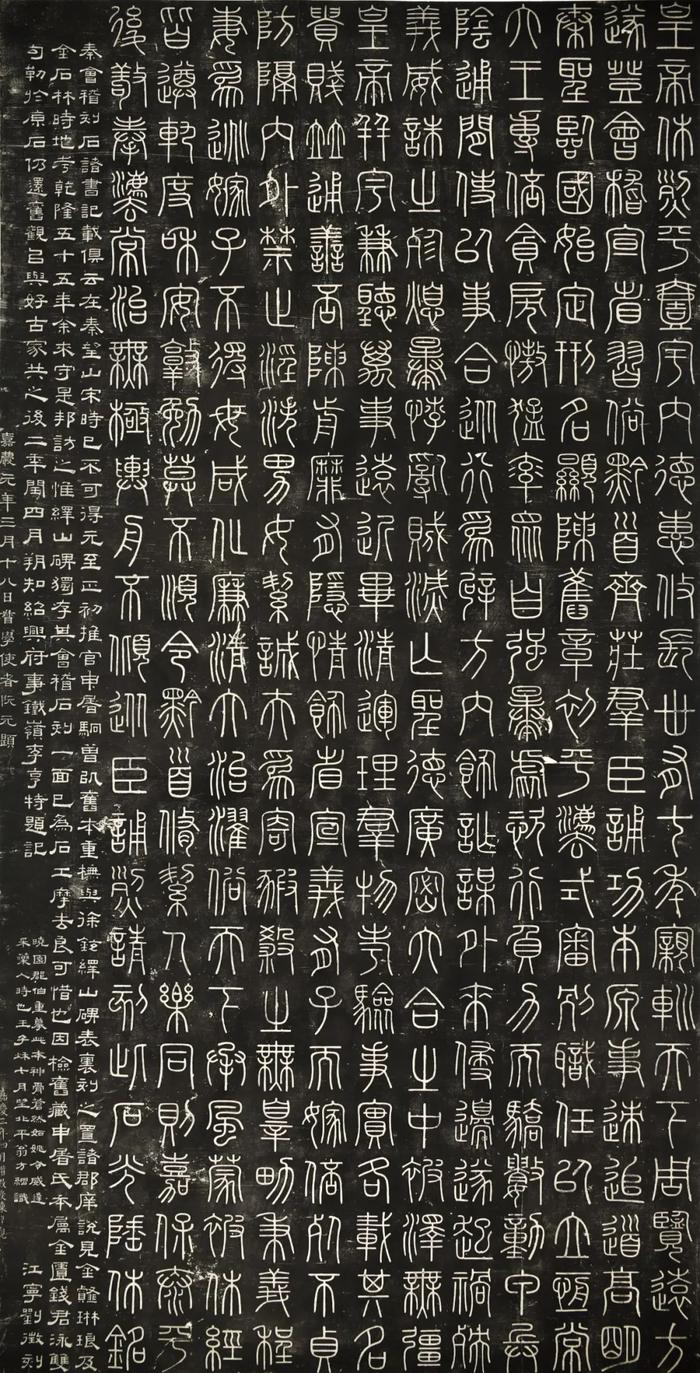 皇帝休烈平壹宇內德惠攸長卅有七年親𨊠天下周覽遠方
遂登會稽宣省習俗黔首齊莊群臣誦功本原事迹追道高明
秦聖臨國始定刑名顯陳舊章初平灋式審別職任以立恒常
六王專倍貪戾慠猛率眾自強暴虐恣行負力而驕數動甲兵
陰通閒使以事合從行為辟方內飾詐謀外來侵邊遂起禍殃
義威誅之殄熄暴悖亂賊滅亡聖德廣密六合之中被澤無彊
皇帝并宇兼聽萬事遠近畢清運理群物考驗事實各載其名
貴賤並通善否陳前靡有隱情飾省宣義有子而嫁倍死不貞
防隔內外禁止淫泆男女絜誠夫為寄豭殺之無辠男秉義程
妻為逃嫁子不得母咸化廉清大治濯俗天下承風蒙被休經
皆遵軌度和安敦勉莫不順令黔首脩絜人樂同則嘉保泰平
後敬奉灋常治無極輿舟不傾從臣誦烈請刻此石光陲休銘
秦會稽刻石諸書記載俱云在秦望山宋時已不可得元至正初推官申屠駉曾以舊本重橅與徐鉉繹山碑表裏刻之置諸郡庠說見金薤琳琅及
金石林時地考乾隆五十五年余來守是邦訪之惟繹山碑獨存其會稽石刻一面已為石工摩去良可惜也因檢舊藏申屠氏本屬金匱錢君泳雙
勾勒於原石仍還舊觀以與好古家共之後二年閏四月朔知紹興府事鐵嶺李亨特題記
曉園郡伯重摹此本神采蒼然如姚令威遇
采藥人時也壬子秋十月望北平翁方綱識
江寧劉徵刻
嘉慶元年二月十八日督學使者阮元題